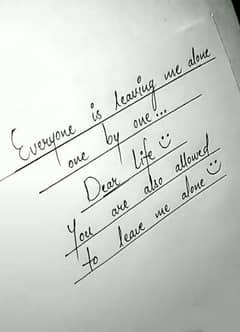 Everyone is leaving me alone
one by one...
Dear Life ☺
You are also allowed
to leave me alone ☺